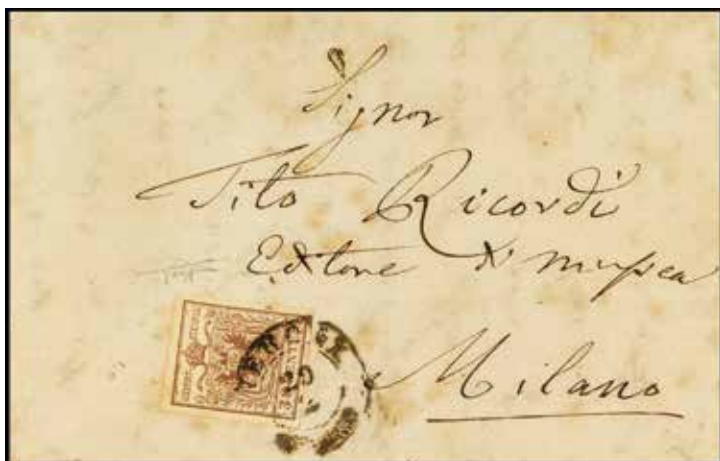 Signor
Tito Ricordi
Editore di musica
Milano
29